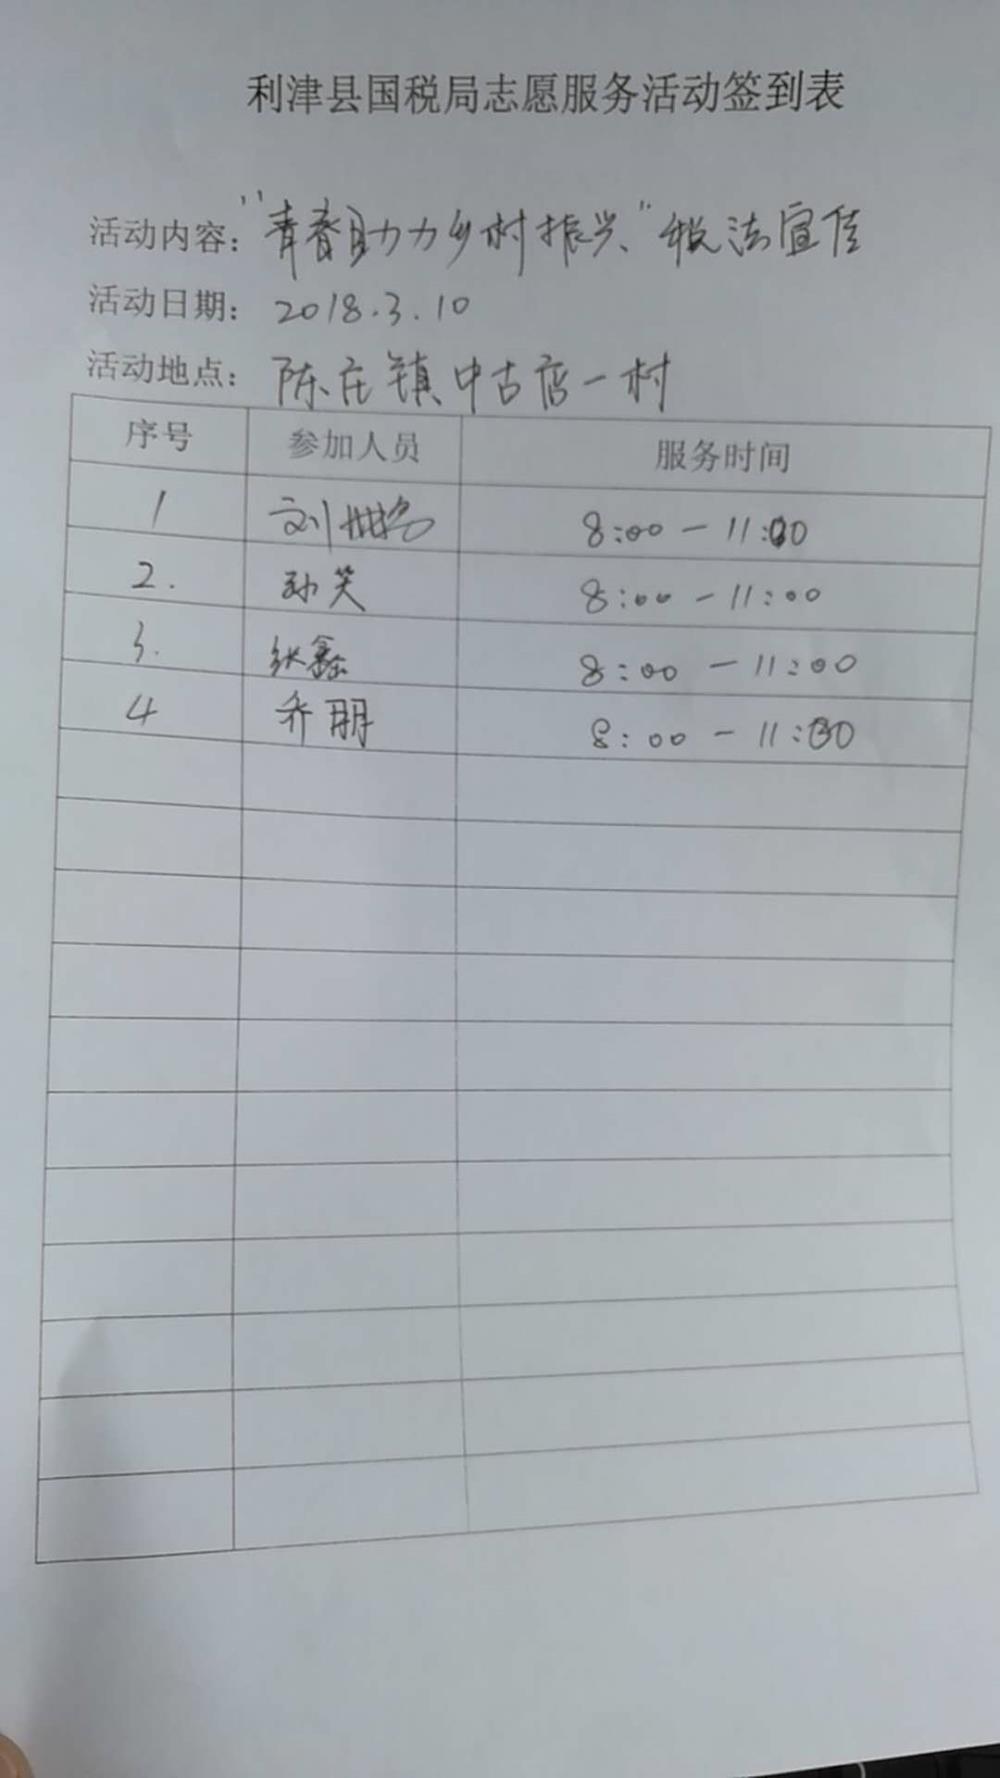 利津县国税局志愿服务活动签到表
活动内容：“青春助力乡村振兴”税法宣传
活动日期：2018.3.10
活动地点：陈庄镇中古店一村
序号 参加人员 服务时间
1 刘 8:00-11:00
2. 孙笑 8:00-11:00
3. 张鑫 8:00-11:00
4 乔朋 8:00-11:00